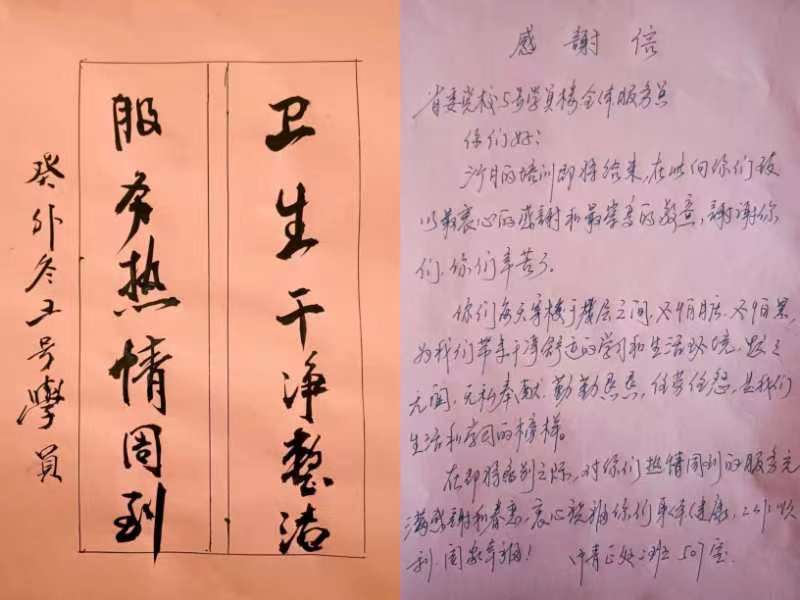 卫生干净整洁
服务热情周到
癸卯冬五号學員
感謝信
省委党校5号学员楼全体服务员
你们好：
月的培训即将结束，在此向你们致
以最衷心的感謝和最崇高的敬意，謝谢你
们，你们辛苦了。
你们每天穿梭于楼层之间，不怕脏、不怕累，
为我们带来干净舒适的学习和生活环境，默默
无闻，无私奉献，勤勤恳恳，任劳任怨，是我们
生活和学习的榜样。
在即将临别之际，对你们热情周到的服务充
满感謝和眷恋，衷心祝福你们身体健康，工作顺
利，阖家幸福！ 中青正处二班 507室